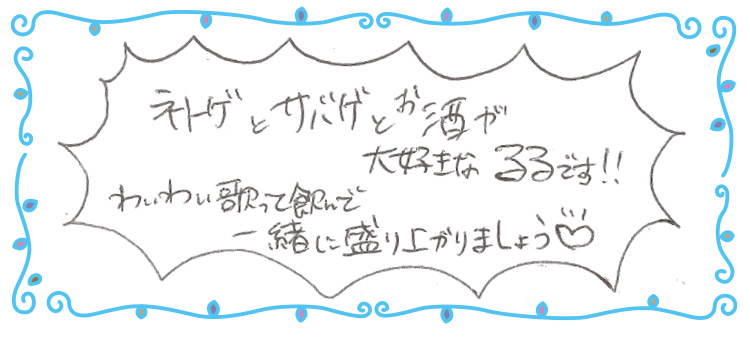 ネトゲとサバゲとお酒が
大好きな るるです!!
わいわい歌って飲んで
一緒に盛り上がりましょう♡